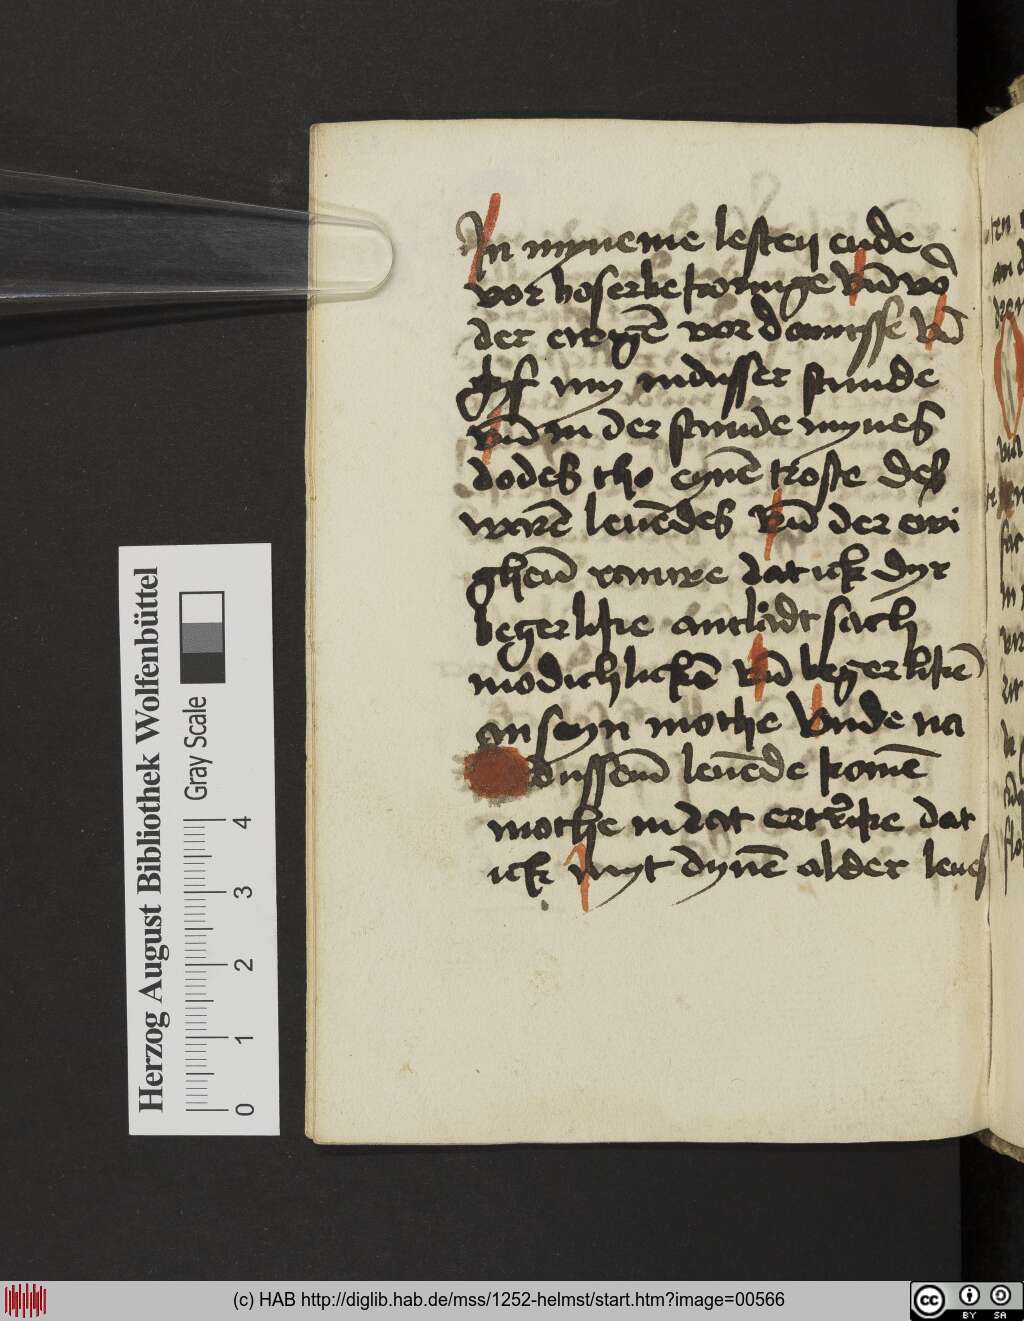 In myneme lesten ende
vor boser bekoringe vn̄ vō
der ewigē vordomisse vn̄
ghif my in dusser stunde
vn̄ in der stunde mynes
dodes tho eynē troste des
warē leuēdes vn̄ der ewi
ghen̄ rauwe dat ick dyr
begerlike antlad̊t sach
modichlickē vn̄ begerlikē
an seyn mothe vnde na
dussem̄ leuēde komē
mothe in dat ertrike dat
ick myt dynē alder leues
Herzog August Bibliothek Wolfenbüttel
Gray Scale
0 1 2 3 4
(c) HAB http://diglib.hab.de/mss/1252-helmst/start.htm?image=00566
cc BY SA